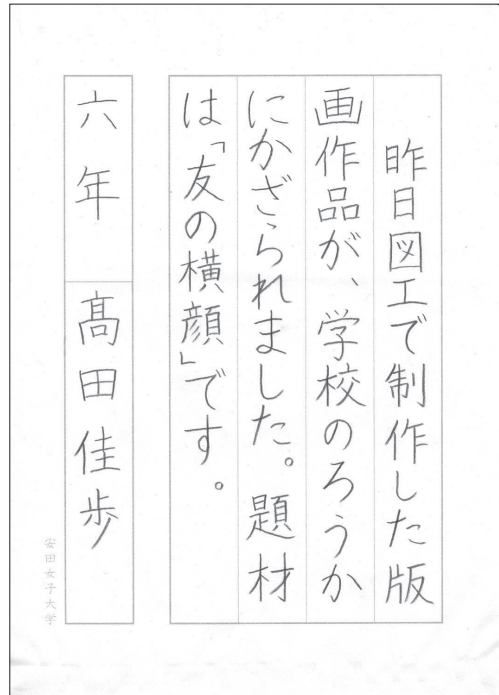 昨日図工で制作した版
画作品が、学校のろうか
にかざられました。題材
は「友の横顔」です。
六年 髙田佳歩
安田女子大学